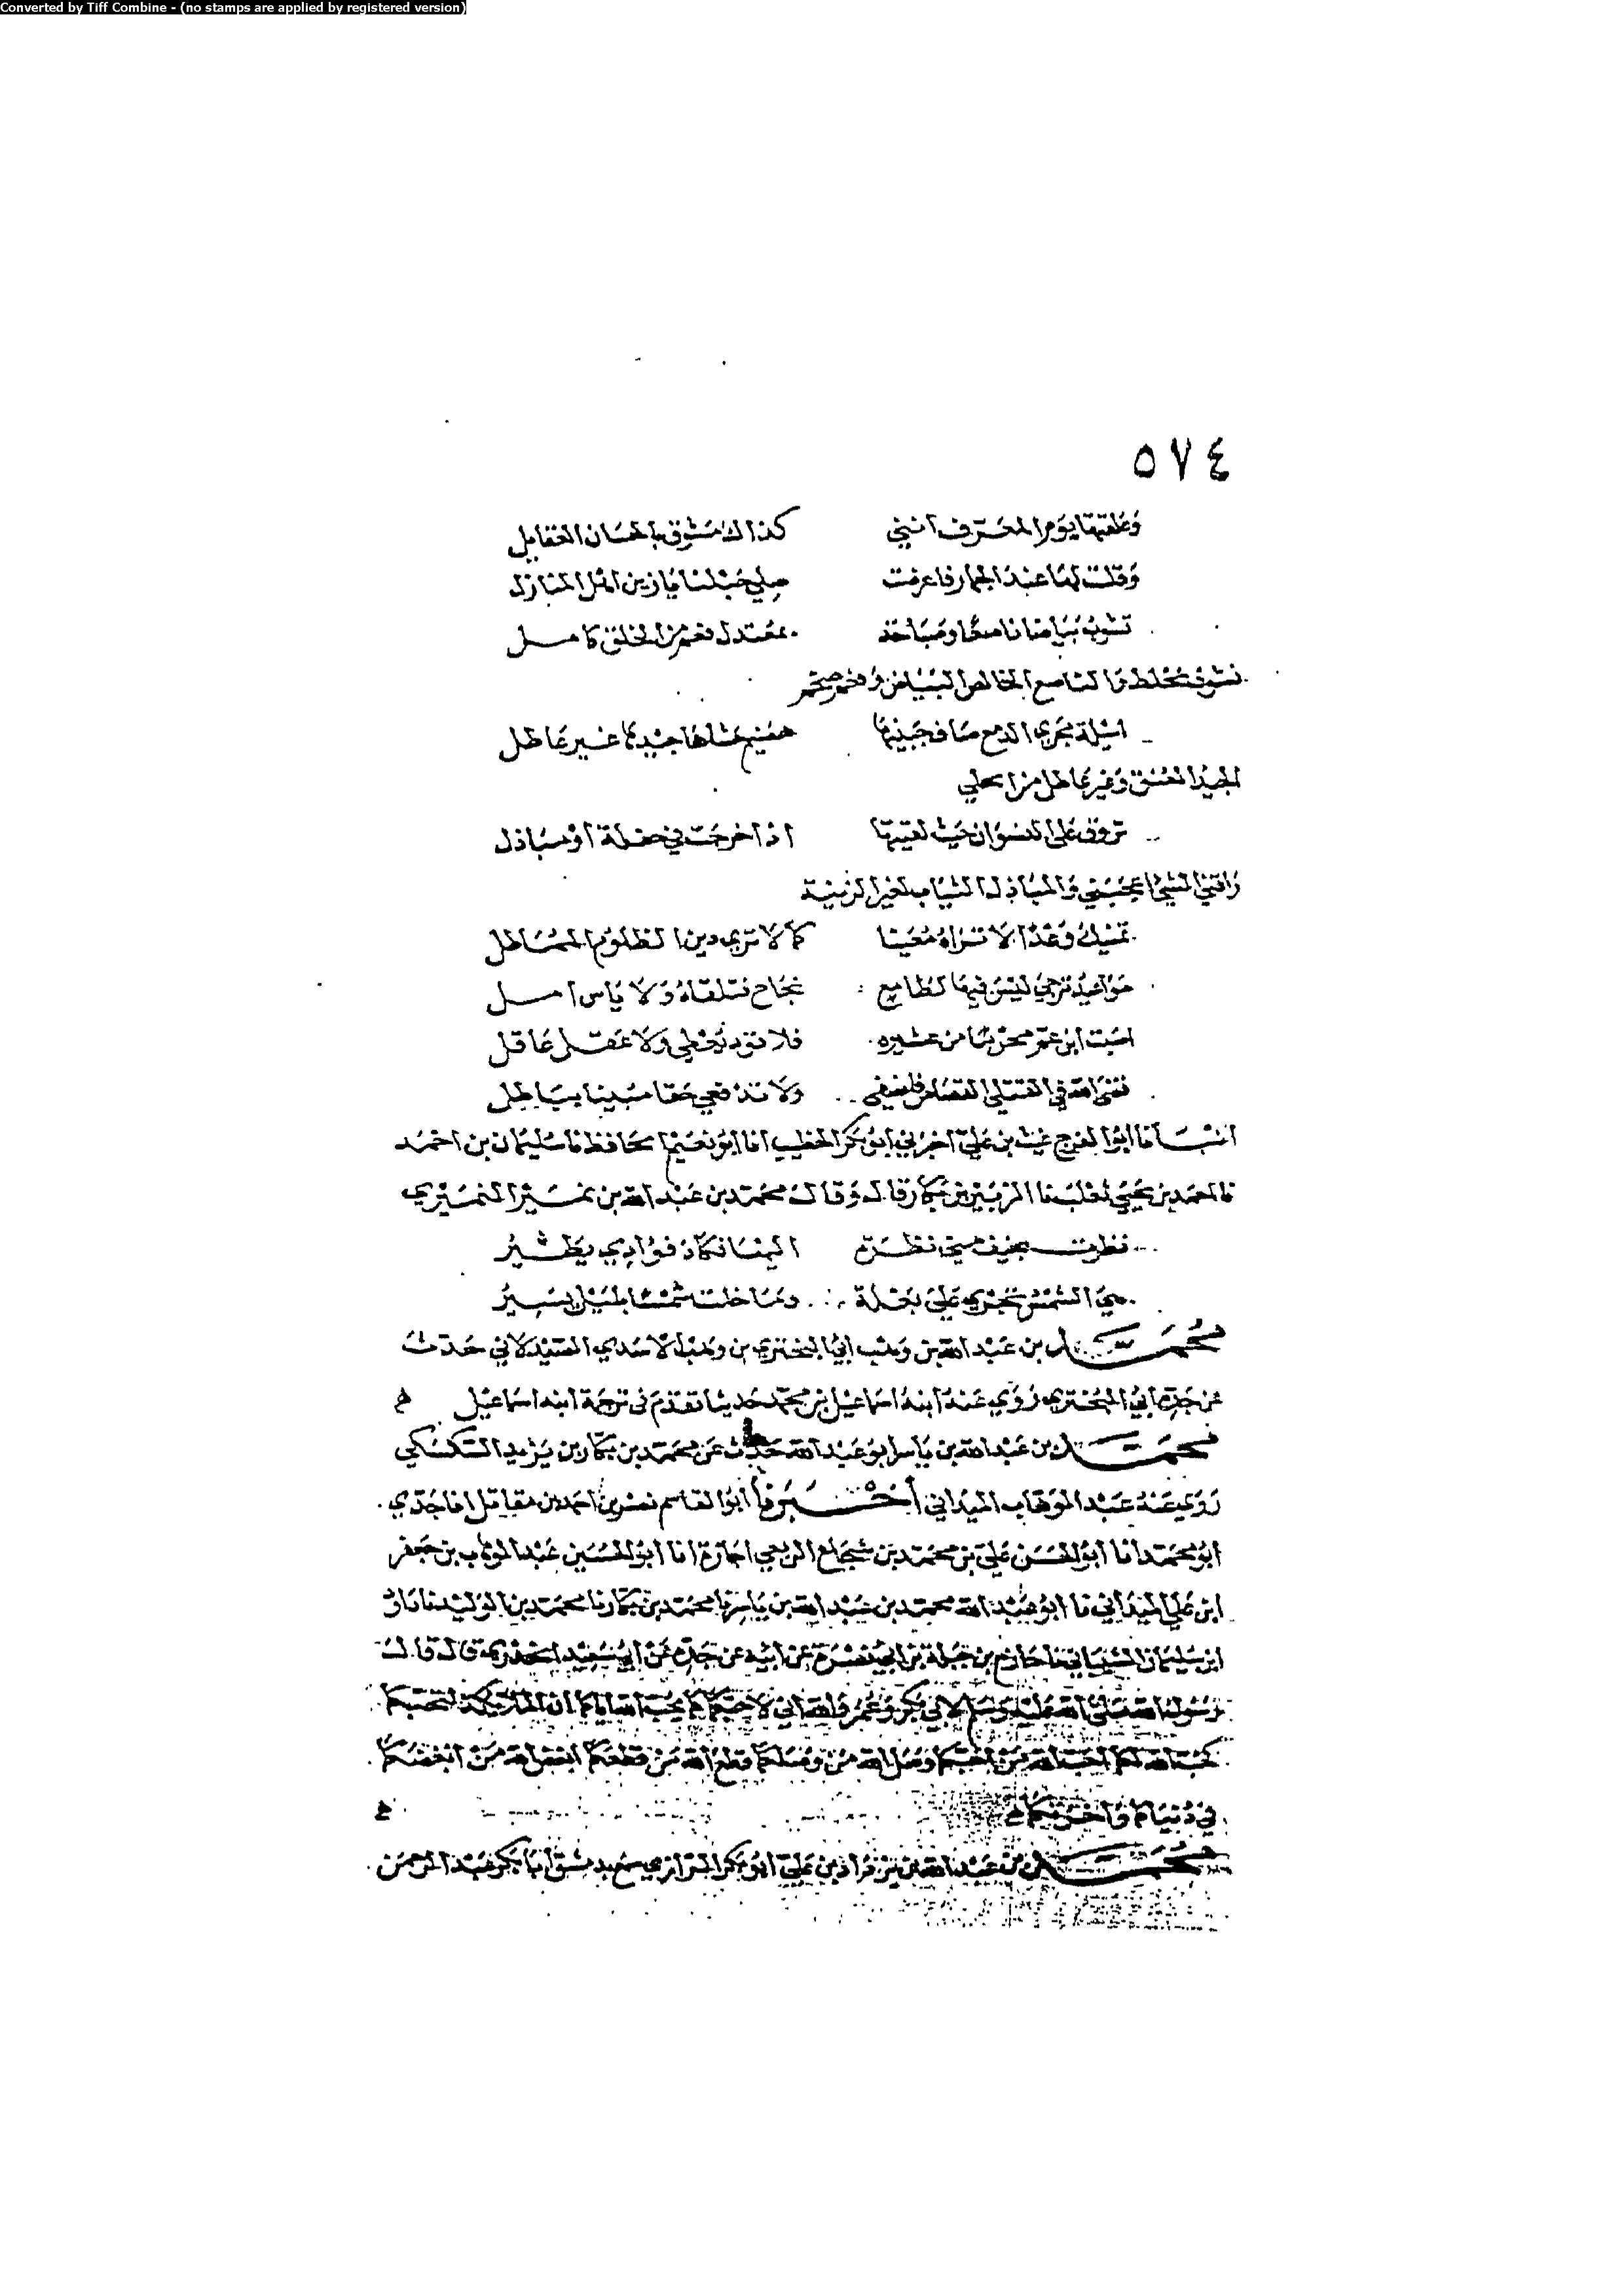 Converted by Tiff Combine - (no stamps are applied by registered version)
٥٧٤
وعلقتها يوم المعرف انني كذاك مشوق بالحسان العقايل
وقلت لها عند الجمار فاعرضت صلي حبلنا يا زين اهل المنازل
تشوب بياضا ناصعا وصباحة بمعتدل فعم من الخلق كامل
تشوب تخلط والناصع الخالص البياض وفعم ضخم
اسيلة مجرى الدمع صاف جبينها هضيم حشاها جيدها غير عاطل
الجيد العنق وغير عاطل من الحلي
تروق على النسوان حيث لقيتها اذا خرجت في حفلة او مباذل
راقني الشيء اعجبني والمباذل الثياب لغير الزينة
تمنيك وعدا لا تراه معينا كما لا ترى دين الظلوم المماطل
مواعيد ترجي ليس فيها لطامع نجاح فتلقاه ولا ياس امل
اصبت ابن عم محربا من عشيره فلا قود تعطي ولا عقل عاقل
قضى الله في القتلى القصاص فانصفي ولا تدفعي حقا مبينا بباطل
انبانا ابو الفرج غيث بن علي اخبرني ابو بكر الخطيب انا ابو نعيم الحافظ نا سليمان بن احمد
نا احمد بن يحيى ثعلب نا الزبير بن بكار قال وقال محمد بن عبد الله بن نمير النميري
نظرت بخيف منى نظرة اليها فكاد فؤادي يطير
هي الشمس تجري على بغلة وما خلت شمسا بليل يسير
محمد بن عبد الله بن وهب ابي البختري بن وهب الاسدي الصيدلاني حدث
عن جده ابي البختري روى عنه ابنه اسماعيل بن محمد حديثا تقدم في ترجمة ابنه اسماعيل
محمد بن عبد الله بن ياسر ابو عبد الله حدث عن محمد بن بكار بن يزيد السكسكي
روى عنه عبد الوهاب الميداني أخبرنا ابو القاسم نصر بن احمد بن مقاتل انا جدي
ابو محمد انا ابو الحسن علي بن محمد بن شجاع الربعي اجازة انا ابو الحسين عبد الوهاب بن جعفر
ابن علي الميداني نا ابو عبد الله محمد بن عبد الله بن ياسر نا محمد بن بكار نا محمد بن الوليد نا داو
ابن سليمان الشيباني نا حازم بن جبلة بن ابي نضرة عن ابيه عن جده عن ابي سعيد الخدري قال قال
رسول الله صلى الله عليه وسلم لابي بكر وعمر والله اني لاحبكما بحب الله اياكما ان الملائكة لتحبكما
بحب الله لكما احب الله من احبكما وصل الله من وصلكما قطع الله من قطعكما ابغض الله من ابغضكما
في دنياكما واخرتكما
محمد بن عبد الله بن يزداد بن علي ابو بكر الرازي سمع بدمشق ابا بكر عبد الرحمن